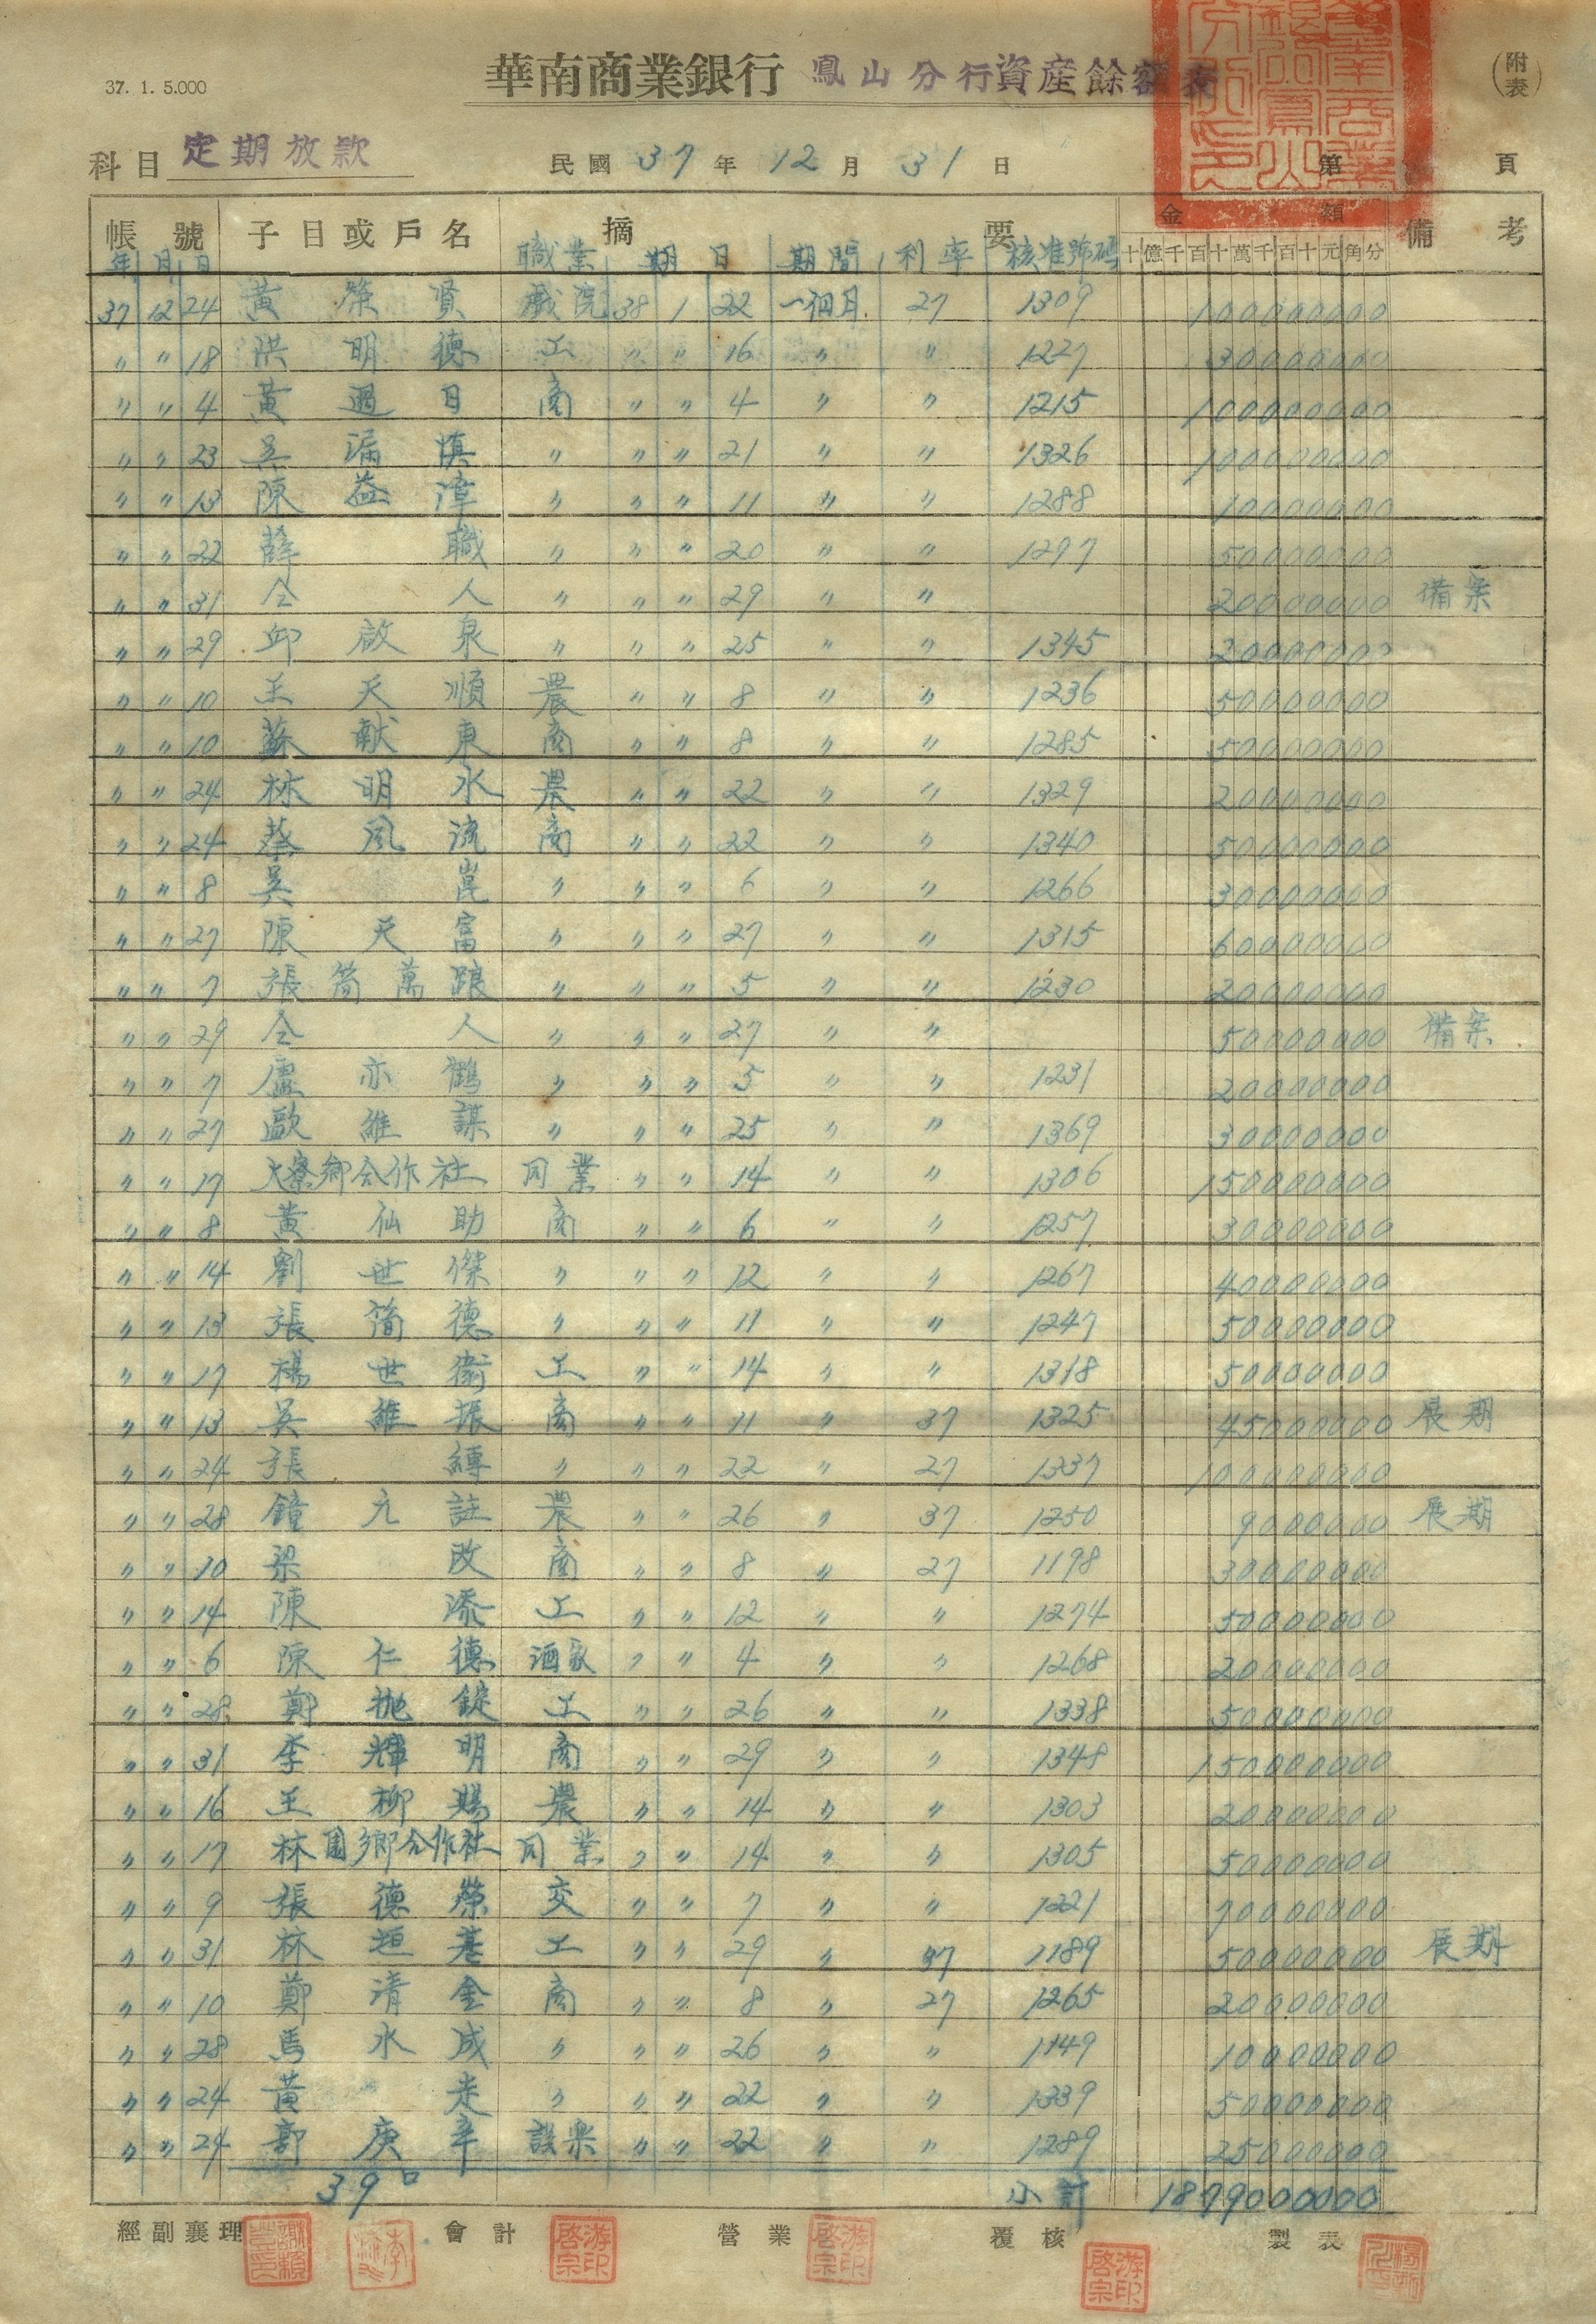 37. 1. 5.000
華南商業銀行 鳳山分行資産餘額表 (附表)
科目 定期放款 民國 37 年 12 月 31 日 第 頁
帳號 子目或戶名 摘要 金額 備考
年 月 日 職業 期日 期間 利率 核准號碼 十億千百十萬千百十元角分
37 12 24 黃榮賢 戲院 38 1 22 一個月 27 1309 100000000
〃 〃 18 洪明德 工 〃 〃 16 〃 〃 1227 30000000
〃 〃 4 黃過日 商 〃 〃 4 〃 〃 1215 100000000
〃 〃 23 吳漏慎 〃 〃 〃 21 〃 〃 1326 100000000
〃 〃 13 陳益漳 〃 〃 〃 11 〃 〃 1288 10000000
〃 〃 22 薛職 〃 〃 〃 20 〃 〃 1297 50000000
〃 〃 31 仝人 〃 〃 〃 29 〃 〃 20000000 備案
〃 〃 29 邱啟泉 〃 〃 〃 25 〃 〃 1345 20000000
〃 〃 10 王天順 農 〃 〃 8 〃 〃 1236 50000000
〃 〃 10 蘇献東 商 〃 〃 8 〃 〃 1285 50000000
〃 〃 24 林明水 農 〃 〃 22 〃 〃 1329 20000000
〃 〃 24 蔡風流 商 〃 〃 22 〃 〃 1340 50000000
〃 〃 8 吳崑 〃 〃 〃 6 〃 〃 1266 30000000
〃 〃 27 陳天富 〃 〃 〃 27 〃 〃 1315 60000000
〃 〃 7 張简萬踉 〃 〃 〃 5 〃 〃 1230 20000000
〃 〃 29 仝人 〃 〃 〃 27 〃 〃 50000000 備案
〃 〃 7 盧亦鶴 〃 〃 〃 5 〃 〃 1231 20000000
〃 〃 27 歐維謀 〃 〃 〃 25 〃 〃 1369 30000000
〃 〃 17 大寮鄉合作社 同業 〃 〃 14 〃 〃 1306 150000000
〃 〃 8 黃仙助 商 〃 〃 6 〃 〃 1257 30000000
〃 〃 14 劉世傑 〃 〃 〃 12 〃 〃 1267 40000000
〃 〃 13 張简德 〃 〃 〃 11 〃 〃 1247 50000000
〃 〃 17 楊世衛 工 〃 〃 14 〃 〃 1318 50000000
〃 〃 13 吳維振 商 〃 〃 11 〃 37 1325 45000000 展期
〃 〃 24 張縳 〃 〃 〃 22 〃 27 1337 100000000
〃 〃 28 鐘元註 農 〃 〃 26 〃 37 1250 9000000 展期
〃 〃 10 梁改 商 〃 〃 8 〃 27 1198 30000000
〃 〃 14 陳添 工 〃 〃 12 〃 〃 1274 50000000
〃 〃 6 陳仁德 酒家 〃 〃 4 〃 〃 1268 20000000
〃 〃 28 鄭拋錠 工 〃 〃 26 〃 〃 1338 50000000
〃 〃 31 李輝明 商 〃 〃 29 〃 〃 1348 150000000
〃 〃 16 王柳賜 農 〃 〃 14 〃 〃 1303 20000000
〃 〃 17 林園鄉合作社 同業 〃 〃 14 〃 〃 1305 50000000
〃 〃 9 張德榮 交 〃 〃 7 〃 〃 1221 70000000
〃 〃 31 林垣基 工 〃 〃 29 〃 37 1189 50000000 展期
〃 〃 10 鄭清金 商 〃 〃 8 〃 27 1265 20000000
〃 〃 28 馬水成 〃 〃 〃 26 〃 〃 1149 10000000
〃 〃 24 黃走 〃 〃 〃 22 〃 〃 1339 50000000
〃 〃 24 郭庚辛 〃 〃 22 〃 〃 1289 25000000
39口 小計 1879000000
經副襄理 會計 營業 覆核 製表
游印啓宗 游印啓宗 游印啓宗